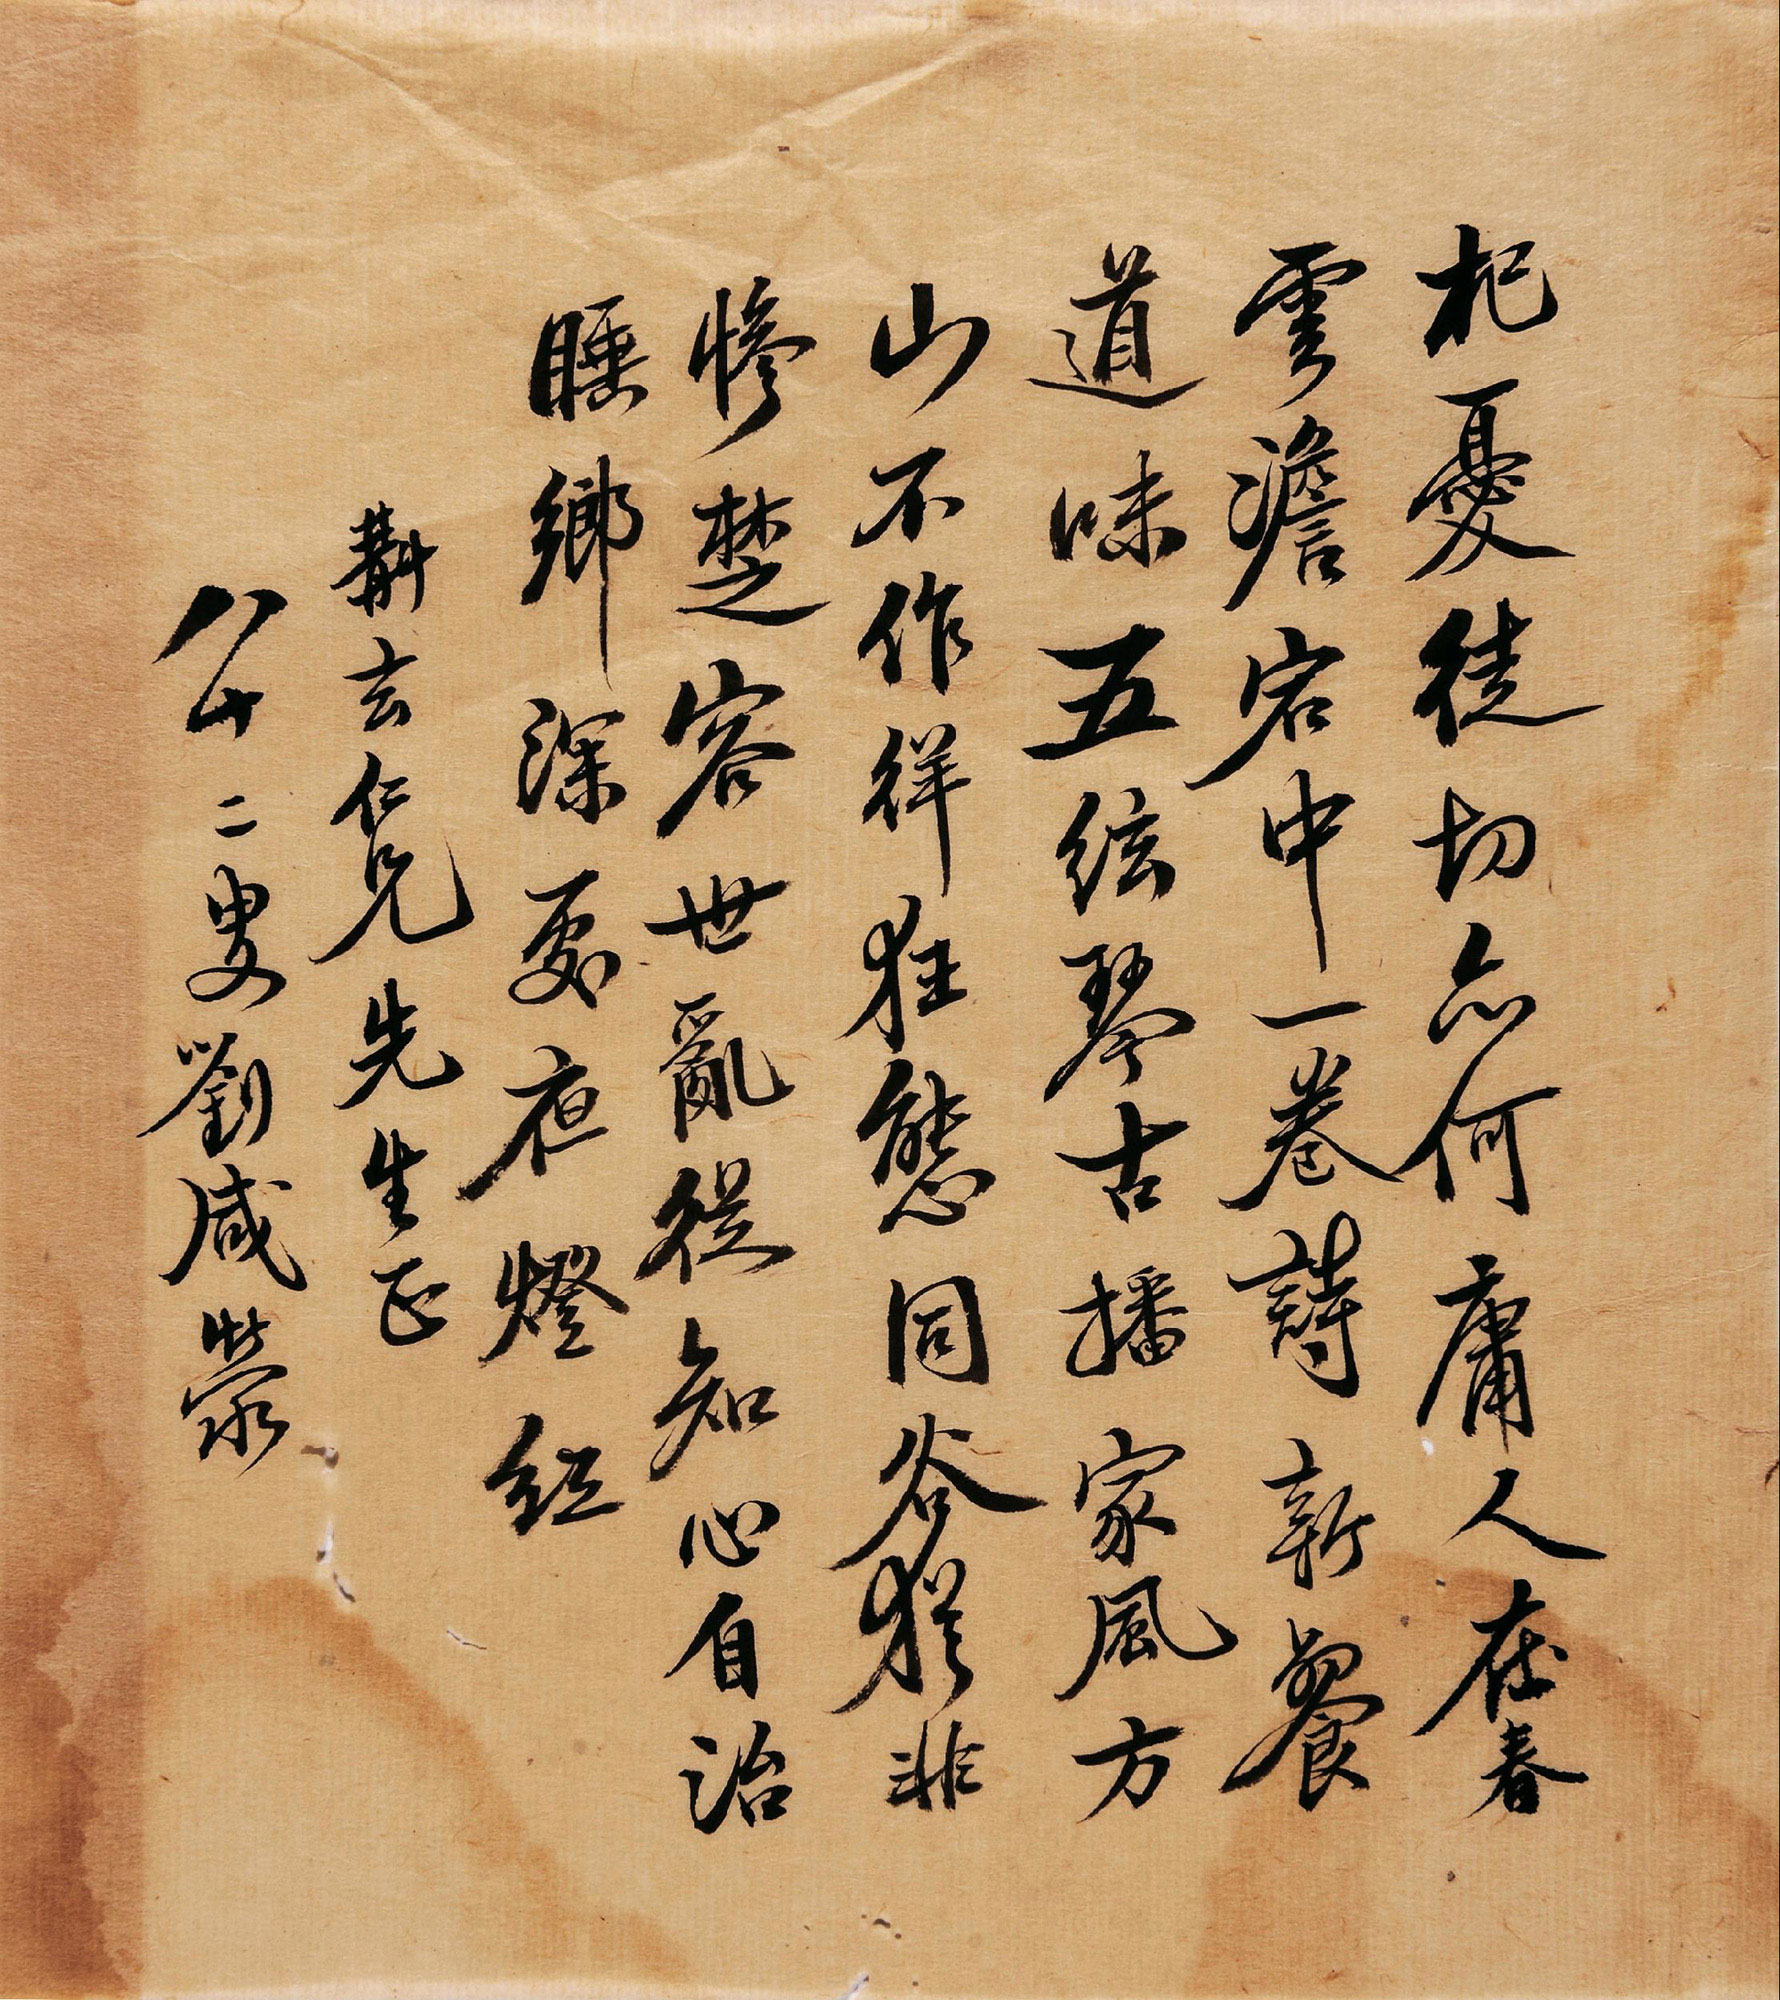 杞憂徒切亦何庸人在春
雲澹宕中一卷詩新餐
道味五絃琴古播家風方
山不作徉狂態同谷猶非
慘楚容世亂從知心自治
睡鄉深處夜燈紅
斠玄仁兄先生正
八十二叟劉咸滎